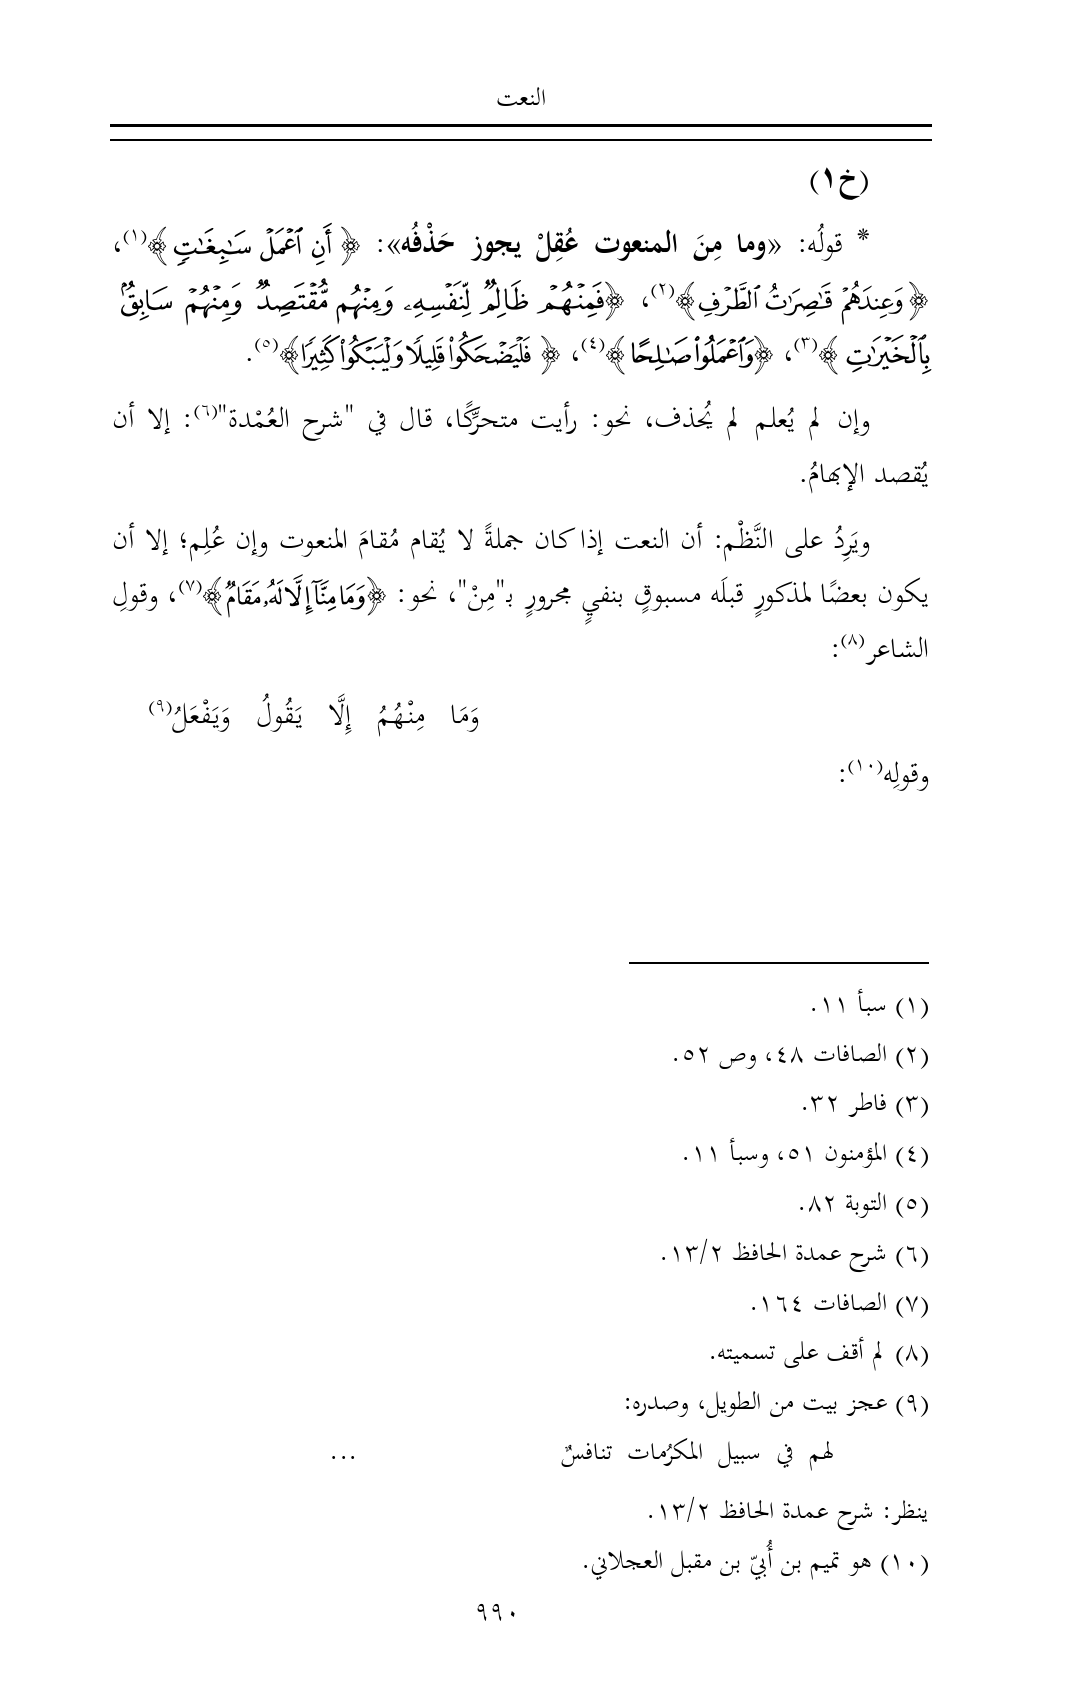 النعت
(خ١)
* قولُه: «وما مِنَ المنعوت عُقِلْ يجوز حَذْفُه»: ﴿أَنِ ٱعْمَلْ سَٰبِغَٰتٖ﴾(١)،
﴿وَعِندَهُمْ قَٰصِرَٰتُ ٱلطَّرْفِ﴾(٢)، ﴿فَمِنْهُمْ ظَالِمٞ لِّنَفْسِهِۦ وَمِنْهُم مُّقْتَصِدٞ وَمِنْهُمْ سَابِقُۢ
بِٱلْخَيْرَٰتِ﴾(٣)، ﴿وَٱعْمَلُوا۟ صَٰلِحًا﴾(٤)، ﴿فَلْيَضْحَكُوا۟ قَلِيلًا وَلْيَبْكُوا۟ كَثِيرًا﴾(٥).
وإن لم يُعلم لم يُحذف، نحو: رأيت متحرِّكًا، قال في "شرح العُمْدة"(٦): إلا أن
يُقصد الإبهامُ.
ويَرِدُ على النَّظْم: أن النعت إذا كان جملةً لا يُقام مُقامَ المنعوت وإن عُلِم؛ إلا أن
يكون بعضًا لمذكورٍ قبلَه مسبوقٍ بنفيٍ مجرورٍ بـ"مِنْ"، نحو: ﴿وَمَا مِنَّآ إِلَّا لَهُۥ مَقَامٞ﴾(٧)، وقولِ
الشاعر(٨):
وَمَا مِنْهُمُ إِلَّا يَقُولُ وَيَفْعَلُ(٩)
وقولِه(١٠):
(١) سبأ ١١.
(٢) الصافات ٤٨، وص ٥٢.
(٣) فاطر ٣٢.
(٤) المؤمنون ٥١، وسبأ ١١.
(٥) التوبة ٨٢.
(٦) شرح عمدة الحافظ ١٣/٢.
(٧) الصافات ١٦٤.
(٨) لم أقف على تسميته.
(٩) عجز بيت من الطويل، وصدره:
لهم في سبيل المكرُمات تنافسٌ ...
ينظر: شرح عمدة الحافظ ١٣/٢.
(١٠) هو تميم بن أُبيّ بن مقبل العجلاني.
٩٩٠